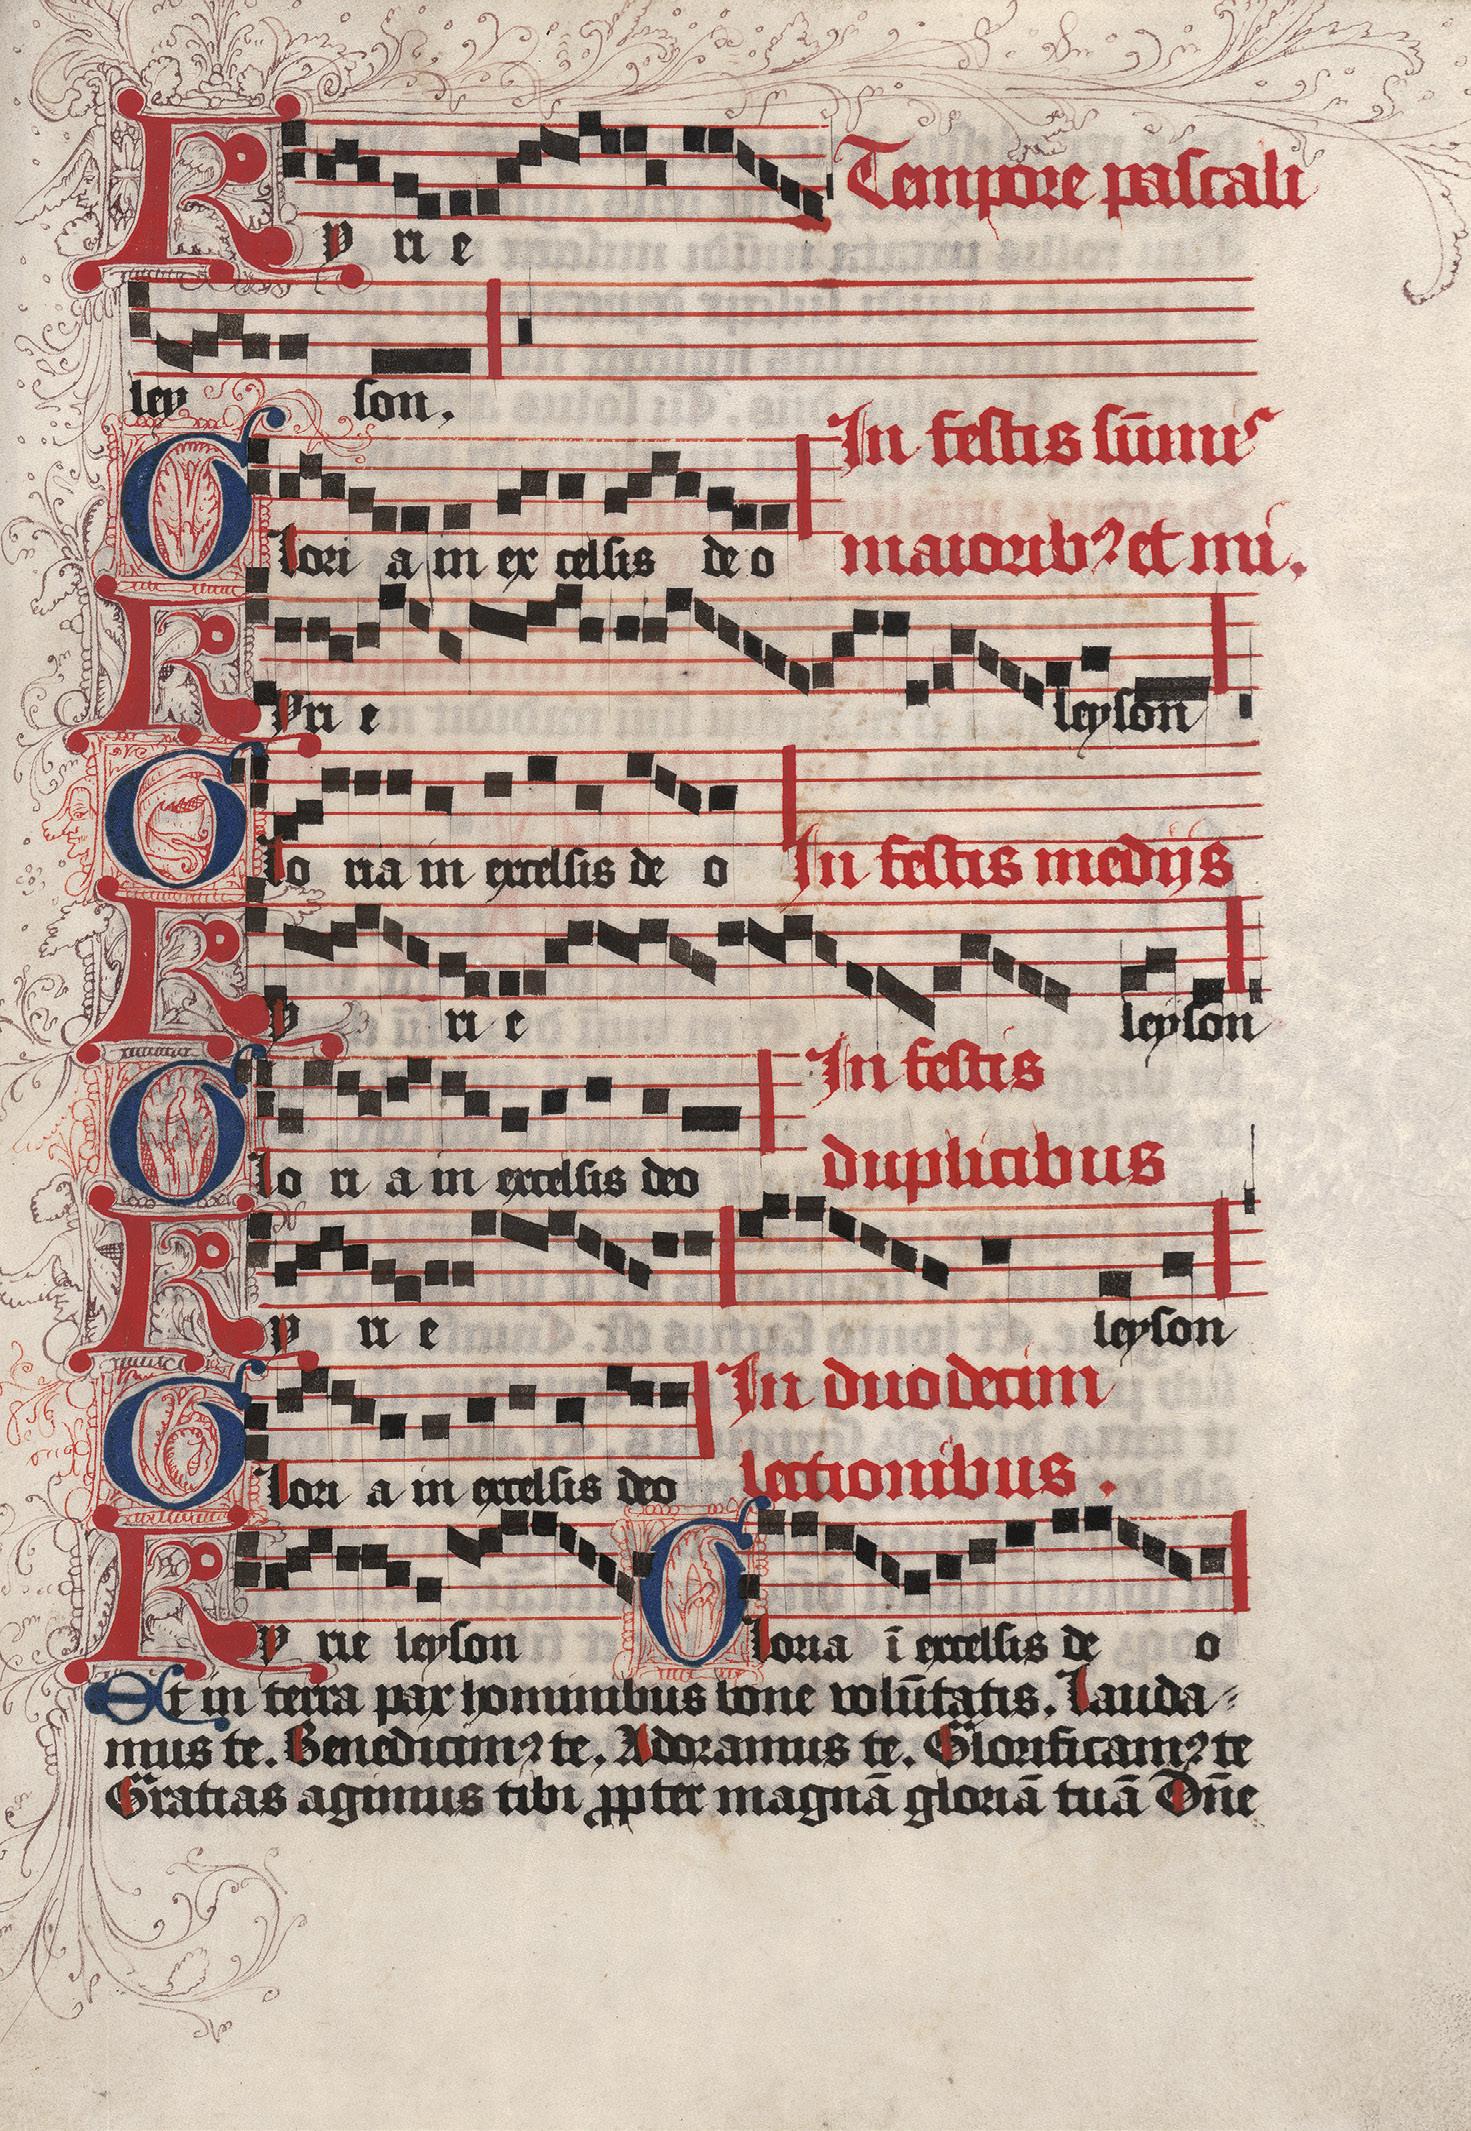 Kyrie Tempore pascali
leyson.
In festis sūmis
Gloria in excelsis deo maiorib⁹ et mi.
Kyrie leyson
Gloria in excelsis deo In festis medijs
Kyrie leyson
In festis
Gloria in excelsis deo duplicibus
Kyrie leyson
In duodecim
Gloria in excelsis deo lectionibus.
Kyrie leyson Gloria ī excelsis deo
Et in terra pax hominibus bone volūtatis. Lauda⸗
mus te. Benedicim⁹ te. Adoramus te. Glorificam⁹ te
Gratias agimus tibi ꝓpter magnā gloriā tuā Dn̄e